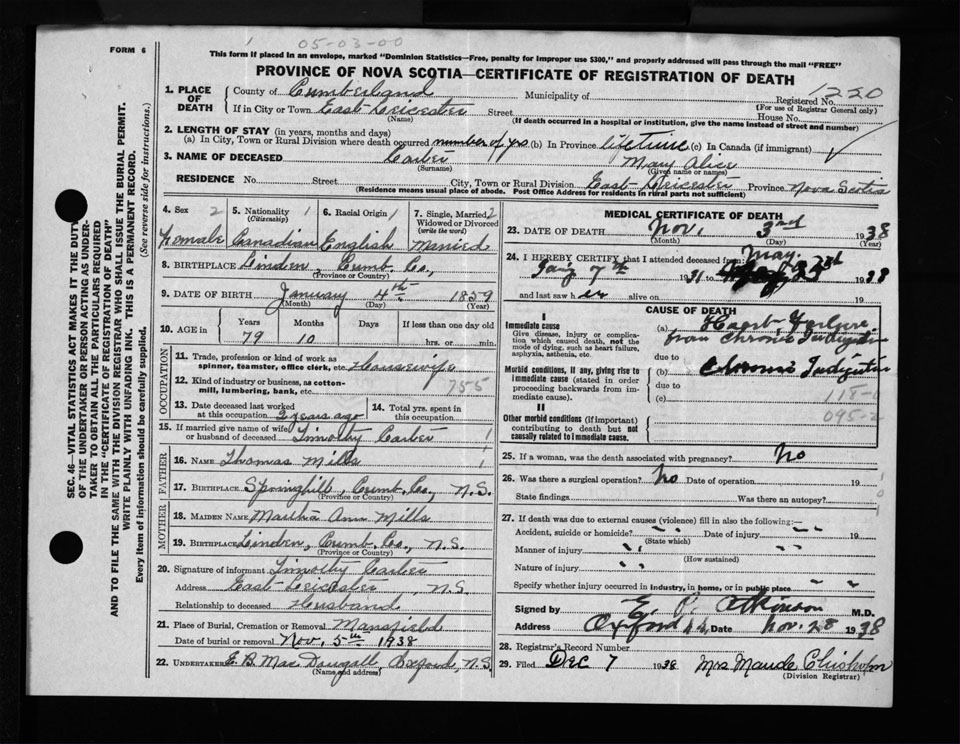 1 05-03-00
FORM 6
This form if placed in an envelope, marked "Dominion Statistics—Free, penalty for improper use $300," and properly addressed will pass through the mail "FREE"
PROVINCE OF NOVA SCOTIA—CERTIFICATE OF REGISTRATION OF DEATH
SEC. 46—VITAL STATISTICS ACT MAKES IT THE DUTY
OF THE UNDERTAKER OR PERSON ACTING AS UNDER-
TAKER TO OBTAIN ALL THE PARTICULARS REQUIRED
IN THE "CERTIFICATE OF REGISTRATION OF DEATH"
AND TO FILE THE SAME WITH THE DIVISION REGISTRAR WHO SHALL ISSUE THE BURIAL PERMIT.
WRITE PLAINLY WITH UNFADING INK. THIS IS A PERMANENT RECORD.
Every item of information should be carefully supplied. (See reverse side for instructions.)
1. PLACE OF DEATH County of Cumberland Municipality of Registered No. 1220
(For use of Registrar General only)
If in City or Town East-Leicester Street House No.
(Name) (If death occurred in a hospital or institution, give the name instead of street and number)
2. LENGTH OF STAY (in years, months and days)
(a) In City, Town or Rural Division where death occurred number of yrs (b) In Province lifetime (c) In Canada (if immigrant)
3. NAME OF DECEASED Carter Mary Alice
(Surname) (Given name or names)
RESIDENCE No. Street City, Town or Rural Division East-Leicester Province Nova Scotia
(Residence means usual place of abode. Post Office Address for residents in rural parts not sufficient)
4. Sex 2 5. Nationality 1 (Citizenship) 6. Racial Origin 1 7. Single, Married, 2 Widowed or Divorced (write the word)
Female Canadian English Married
8. BIRTHPLACE Linden, Cumb. Co,
(Province or Country)
9. DATE OF BIRTH January 4th 1859
(Month) (Day) (Year)
10. AGE in Years Months Days If less than one day
79 10 hrs. or min.
OCCUPATION
11. Trade, profession or kind of work as
spinner, teamster, office clerk, etc. Housewife
12. Kind of industry or business, as cotton-
mill, lumbering, bank, etc. 755
13. Date deceased last worked
at this occupation 2 years ago
14. Total yrs. spent in
this occupation
15. If married give name of wife
or husband of deceased Timothy Carter 1
FATHER
16. Name Thomas Mills 1
17. Birthplace Springhill, Cumb. Co, N.S.
MOTHER
18. Maiden Name Martha Ann Mills
19. Birthplace Linden, Cumb. Co., N.S.
(Province or Country)
20. Signature of informant Timothy Carter
Address East-Leicester, N.S.
Relationship to deceased Husband
21. Place of Burial, Cremation or Removal Mansfield
Date of burial or removal Nov, 5th 1938
22. Undertaker E. B. Mac Dougall, Oxford, N.S
(Name and address)
MEDICAL CERTIFICATE OF DEATH
23. DATE OF DEATH Nov, 3rd 1938
(Month) (Day) (Year)
24. I HEREBY CERTIFY that I attended deceased from May.
7th 31 to 1938
and last saw her alive on 19
CAUSE OF DEATH
I
Immediate cause
Give disease, injury or complica-
tion which caused death, not the
mode of dying, such as heart failure,
asphyxia, asthenia, etc.
(a) Heart-Failure
from chronic Indigestion
due to
Morbid conditions, if any, giving rise to
immediate cause (stated in order
proceeding backwards from im-
mediate cause).
(b) Chronic Indigestion
due to
(c) 118-
095-2
II
Other morbid conditions (if important)
contributing to death but not
causally related to immediate cause.
25. If a woman, was the death associated with pregnancy? No
26. Was there a surgical operation? No Date of operation 19
State findings Was there an autopsy?
27. If death was due to external causes (violence) fill in also the following:—
Accident, suicide or homicide? Date of injury 19
(State which)
Manner of injury
(How sustained)
Nature of injury
Specify whether injury occurred in industry, in home, or in public place
Signed by E. P. Atkinson M.D.
Address Oxford Date Nov. 28 1938
28. Registrar's Record Number
29. Filed Dec 7 1938 Mrs Maude Chisholm
(Division Registrar)